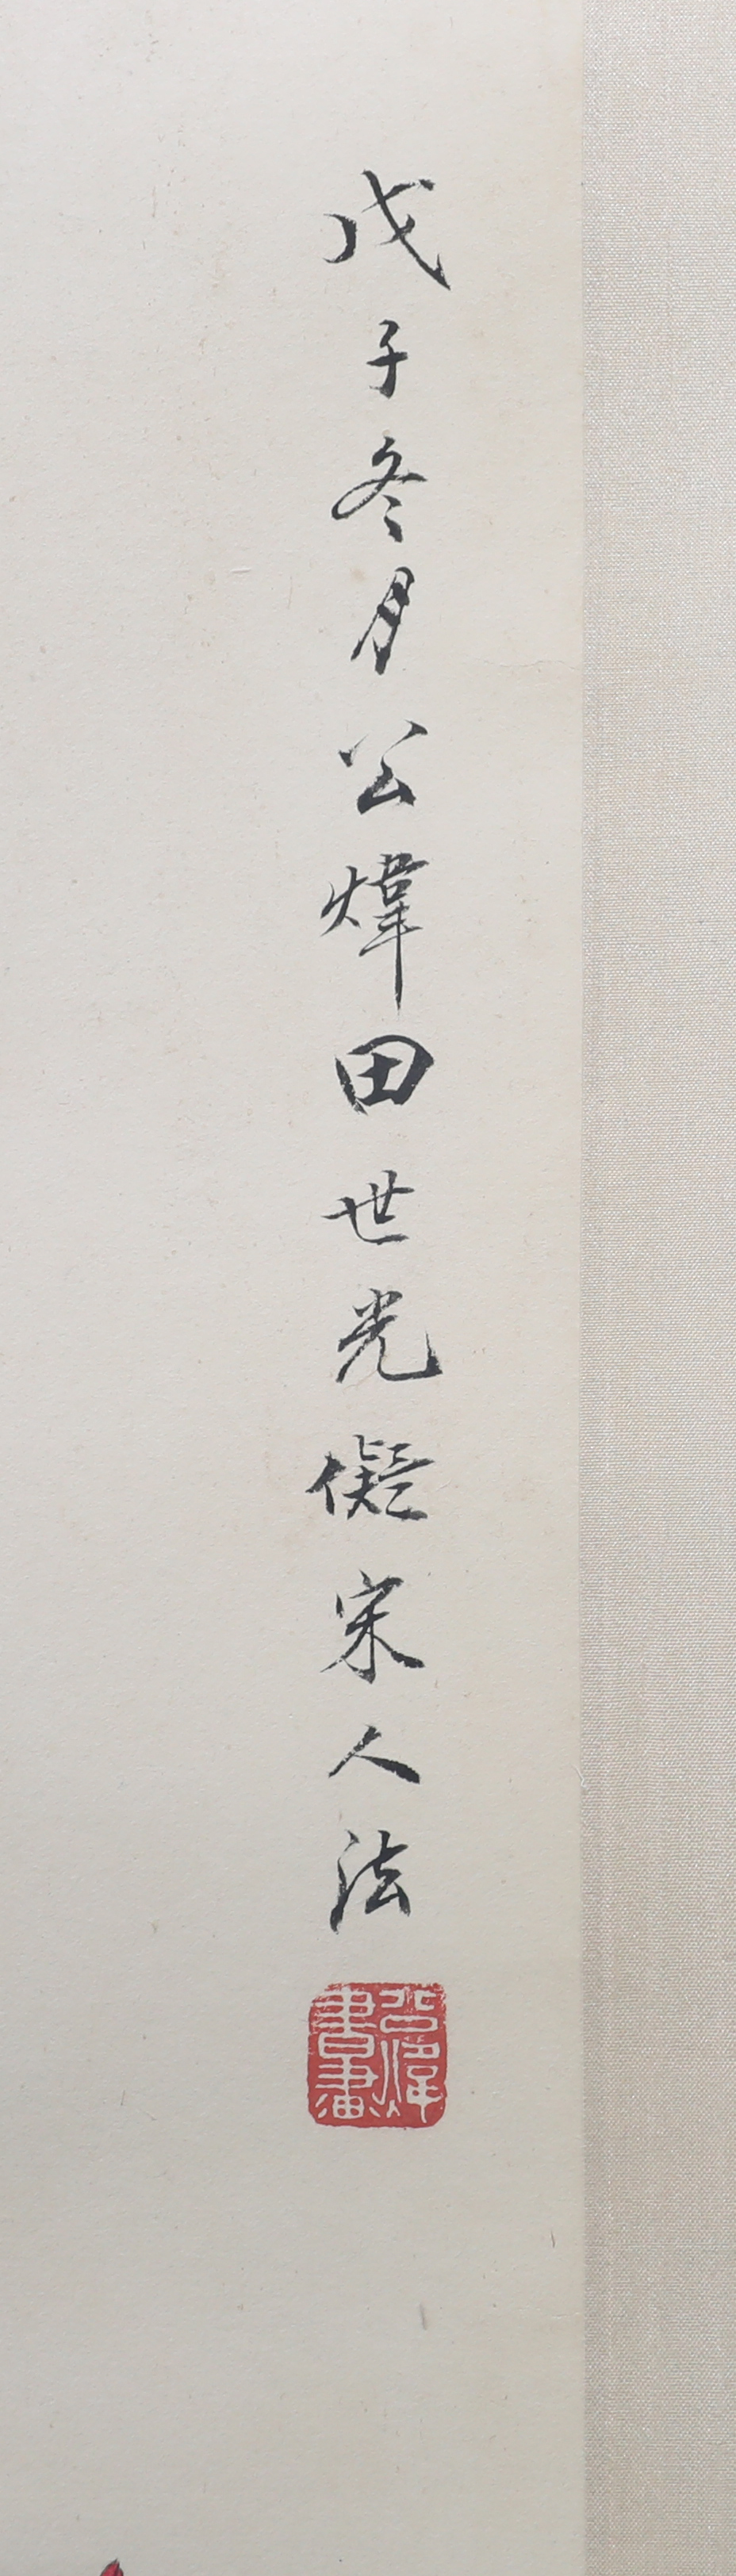 戊子冬月公煒田世光儗宋人法
公煒
書畫